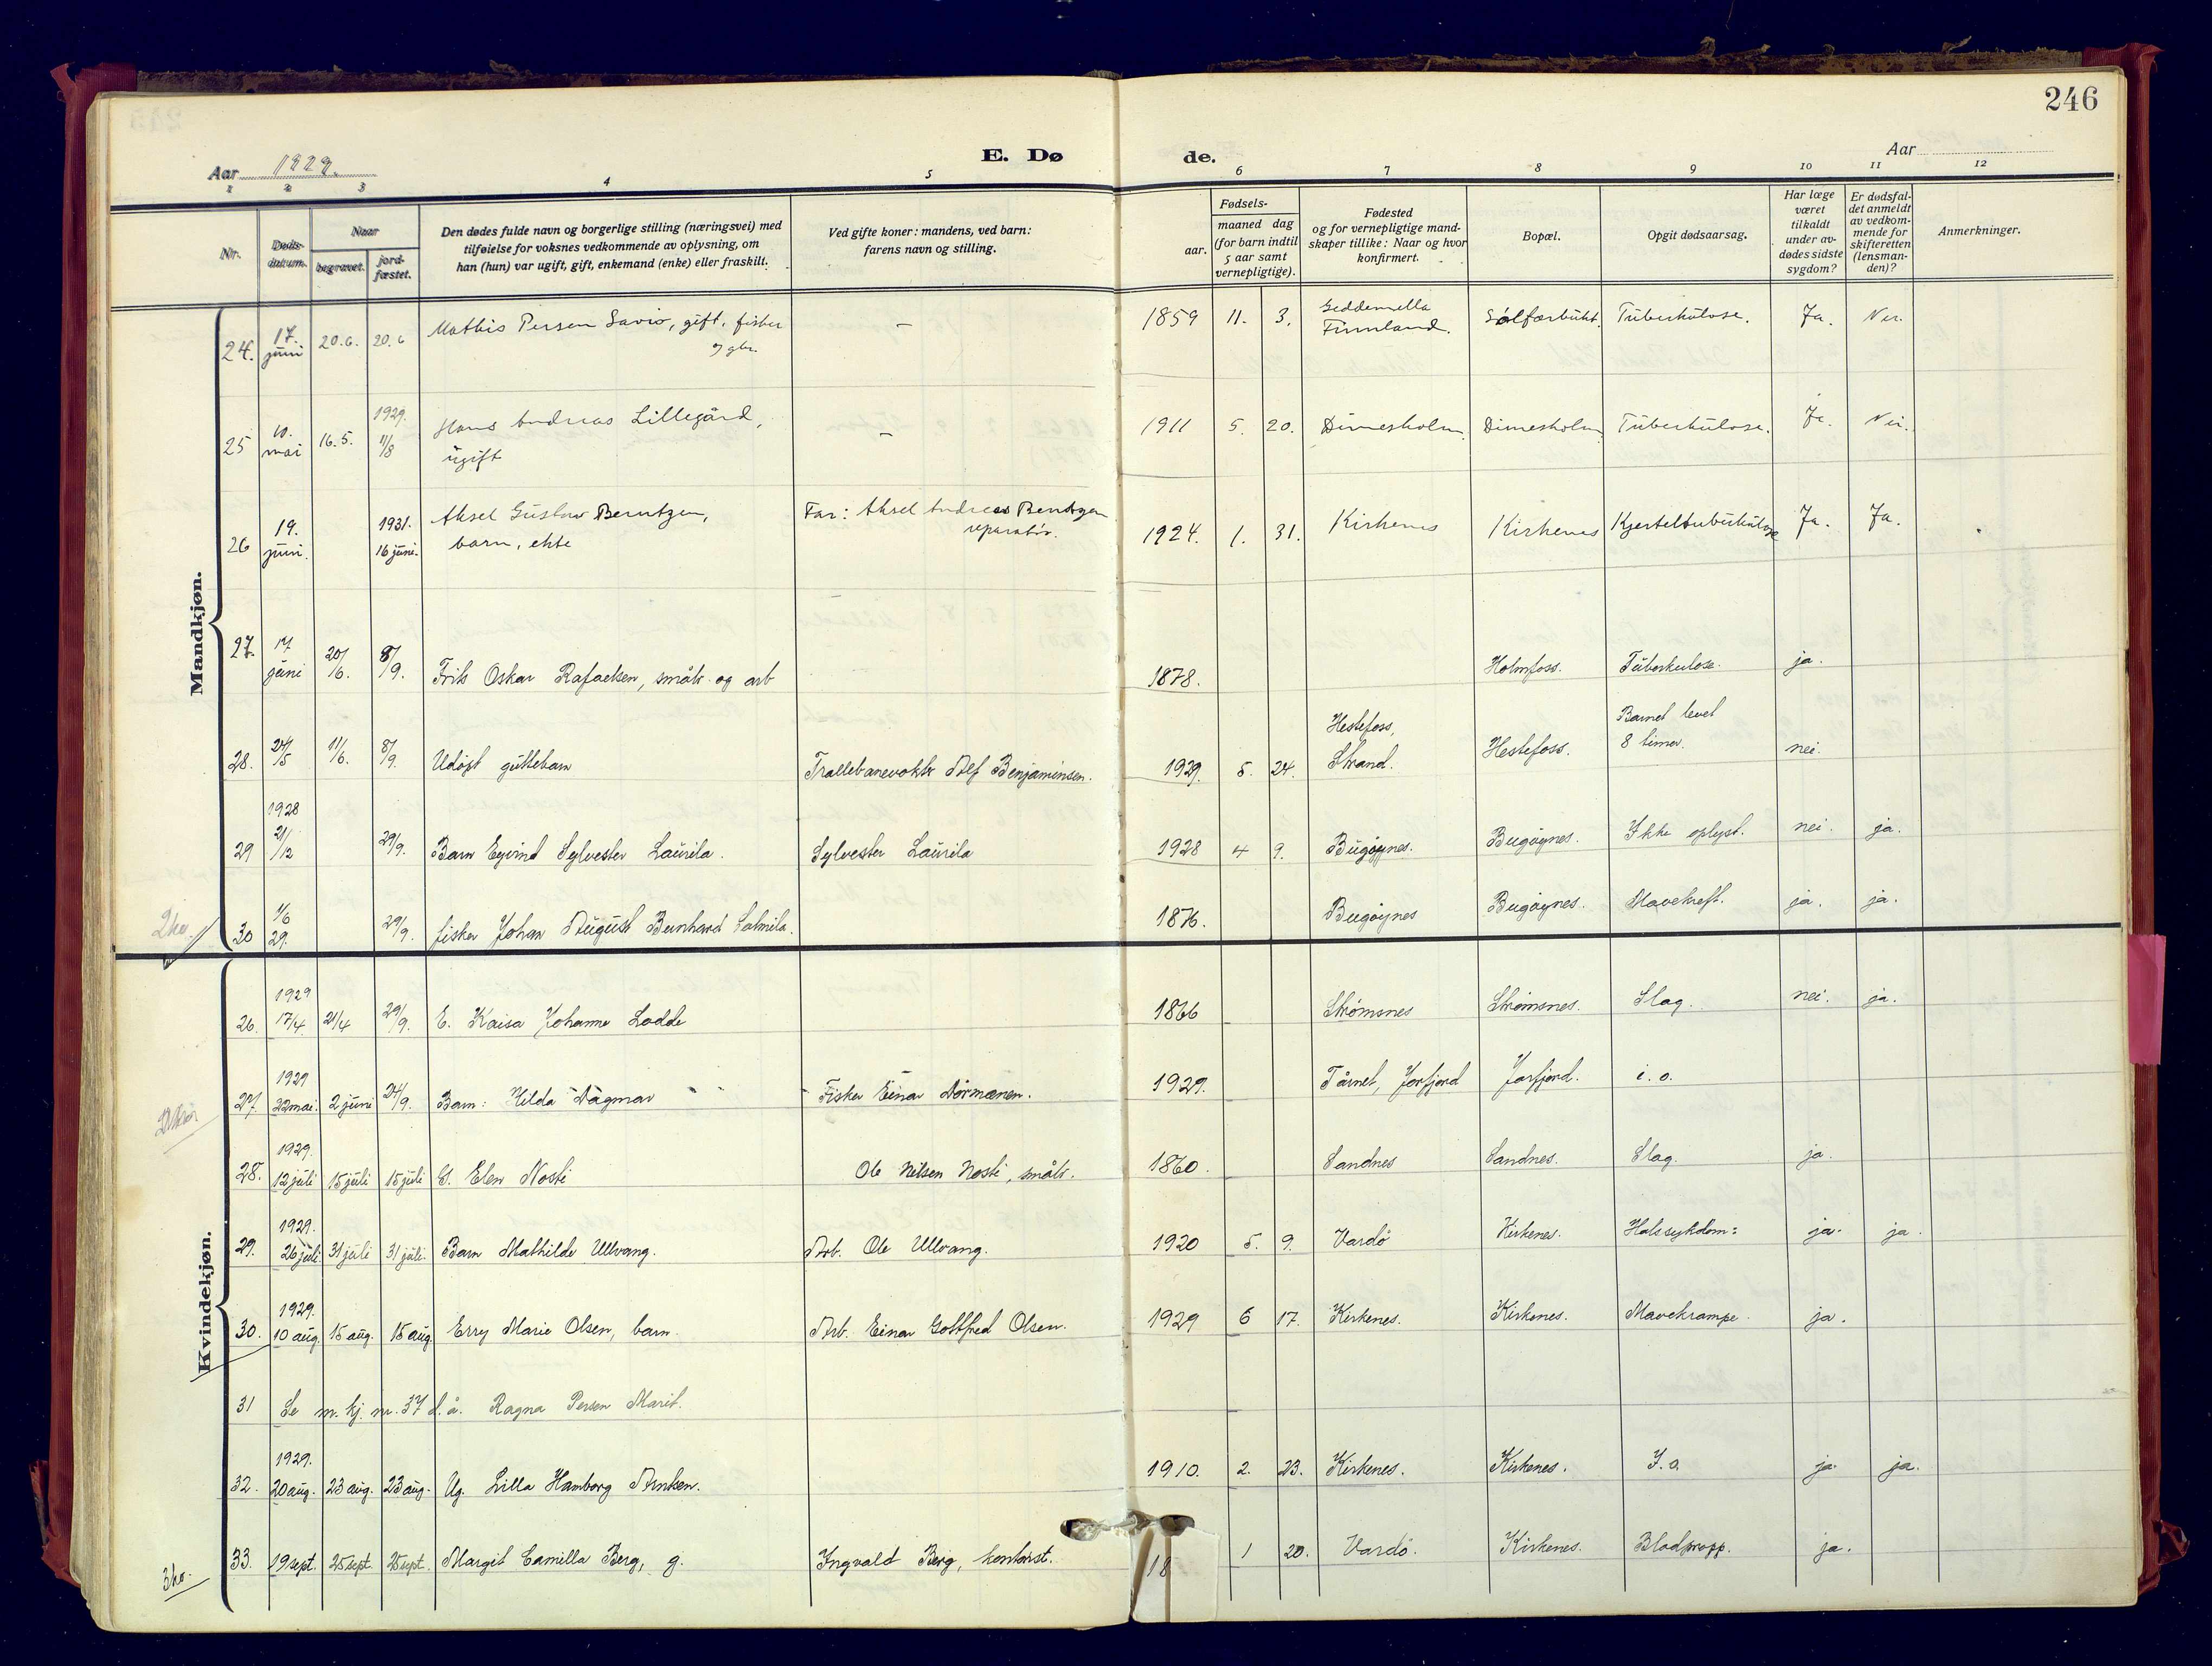 246
Aar 1929.
E. Døde.
Aar
1 2 3 4 5 6 7 8 9 10 11 12
Nr.
Døds-
datum.
Naar
begravet.
jord-
fæstet.
Den dødes fulde navn og borgerlige stilling (næringsvei) med
tilføielse for voksnes vedkommende av oplysning, om
han (hun) var ugift, gift, enkemand (enke) eller fraskilt.
Ved gifte koner: mandens, ved barn:
farens navn og stilling.
Fødsels-
aar.
maaned dag
(for barn indtil
5 aar samt
vernepligtige).
Fødested
og for vernepligtige mand-
skaper tillike: Naar og hvor
konfirmert.
Bopæl.
Opgit dødsaarsag.
Har læge
været
tilkaldt
under av-
dødes sidste
sygdom?
Er dødsfal-
det anmeldt
av vedkom-
mende for
skifteretten
(lensman-
den)?
Anmerkninger.
Mandkjøn.
24. 17. juni 20.6. 20.6 Mathis Persen Savio, gift, fisker og gbr. – 1859 11. 3. Geddemella Finnland. Sølfarbukt. Tuberkulose. Ja. Nei.
25 10. mai 16.5. 1929. 11/8 Hans Andreas Lillegård, ugift – 1911 5. 20. Dimesholm. Dimesholm. Tuberkulose. Ja. Nei.
26 19. juni. 1931. 16 juni. Aksel Gustav Berntzen, barn, ekte Far: Aksel Andreas Berntzen reparatör. 1924. 1. 31. Kirkenes Kirkenes Kjerteltuberkulose Ja. Ja.
27. 17 juni 20/6. 8/9. Frits Oskar Rafaelsen, småbr. og arb 1878. Holmfoss. Tuberkulose. ja.
28. 24/5 11/6. 8/9. Udøpt guttebarn Trallebanevokter Alf Benjaminsen. 1929. 5. 24. Hestefoss, Strand. Hestefoss. Barnet levet 8 timer. nei.
29 1928 21/12 29/9. Barn Eyvind Sylvester Laurila. Sylvester Laurila 1928 4 9. Bugøynes. Bugøynes. Ikke oplyst. nei. ja.
2 ko.
30 1/6 29. 29/9. fisker Johan August Bernhard Salmila. 1876. Bugøynes Bugøynes. Mavekreft. ja. ja.
Kvindekjøn.
26. 1929 17/4. 21/4 29/9. E. Kaisa Johanne Lodde 1866 Strømsnes Strømsnes. Slag. nei. ja.
27. 1929 22 mai. 2 juni 24/9. Barn: Hilda Dagmar Fisker Einar Dørmænen. 1929. Tårnet, Jarfjord Jarfjord. i.o.
28. 1929. 12 juli 15 juli 15 juli G. Elen Nosti Ole Nilsen Nosti, småbr. 1860. Sandnes Sandnes. Slag. ja.
29. 1929. 26 juli. 31 juli 31 juli. Barn Mathilde Ullvang. Arb. Ole Ullvang. 1920 5. 9. Vardö Kirkenes. Halssykdom: ja. ja.
30. 1929. 10 aug. 15 aug. 15 aug. Erry Marie Olsen, barn. Arb. Einar Gottfred Olsen. 1929 6 17. Kirkenes. Kirkenes. Mavekrampe. ja.
31 Se m. kj. nr. 37 d. å. Ragna Persen Marit.
32. 1929. 20 aug. 23 aug. 23 aug. Ug. Lilla Hamborg Arntsen. 1910. 2. 23. Kirkenes. Kirkenes. I.o. ja. ja.
3 ko.
33. 19 sept. 25 sept. 25 sept. Margit Camilla Berg, g. Ingvald Berg, kontorist. 18 1 20. Vardö. Kirkenes. Blodpropp. ja.